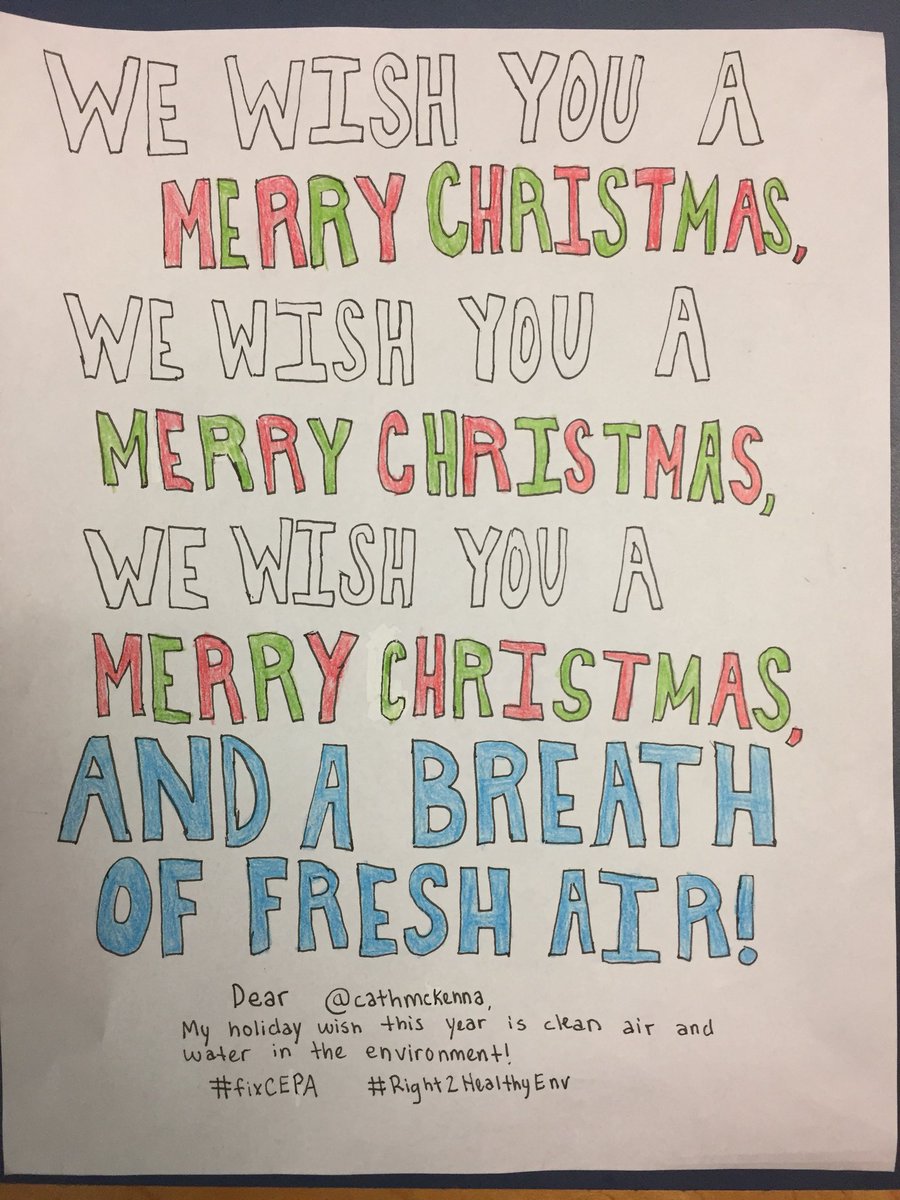 WE WISH YOU A
MERRY CHRISTMAS,
WE WISH YOU A
MERRY CHRISTMAS,
WE WISH YOU A
MERRY CHRISTMAS,
AND A BREATH
OF FRESH AIR!
Dear @cathmckenna,
My holiday wish this year is clean air and
water in the environment!
#fixCEPA #Right2HealthyEnv